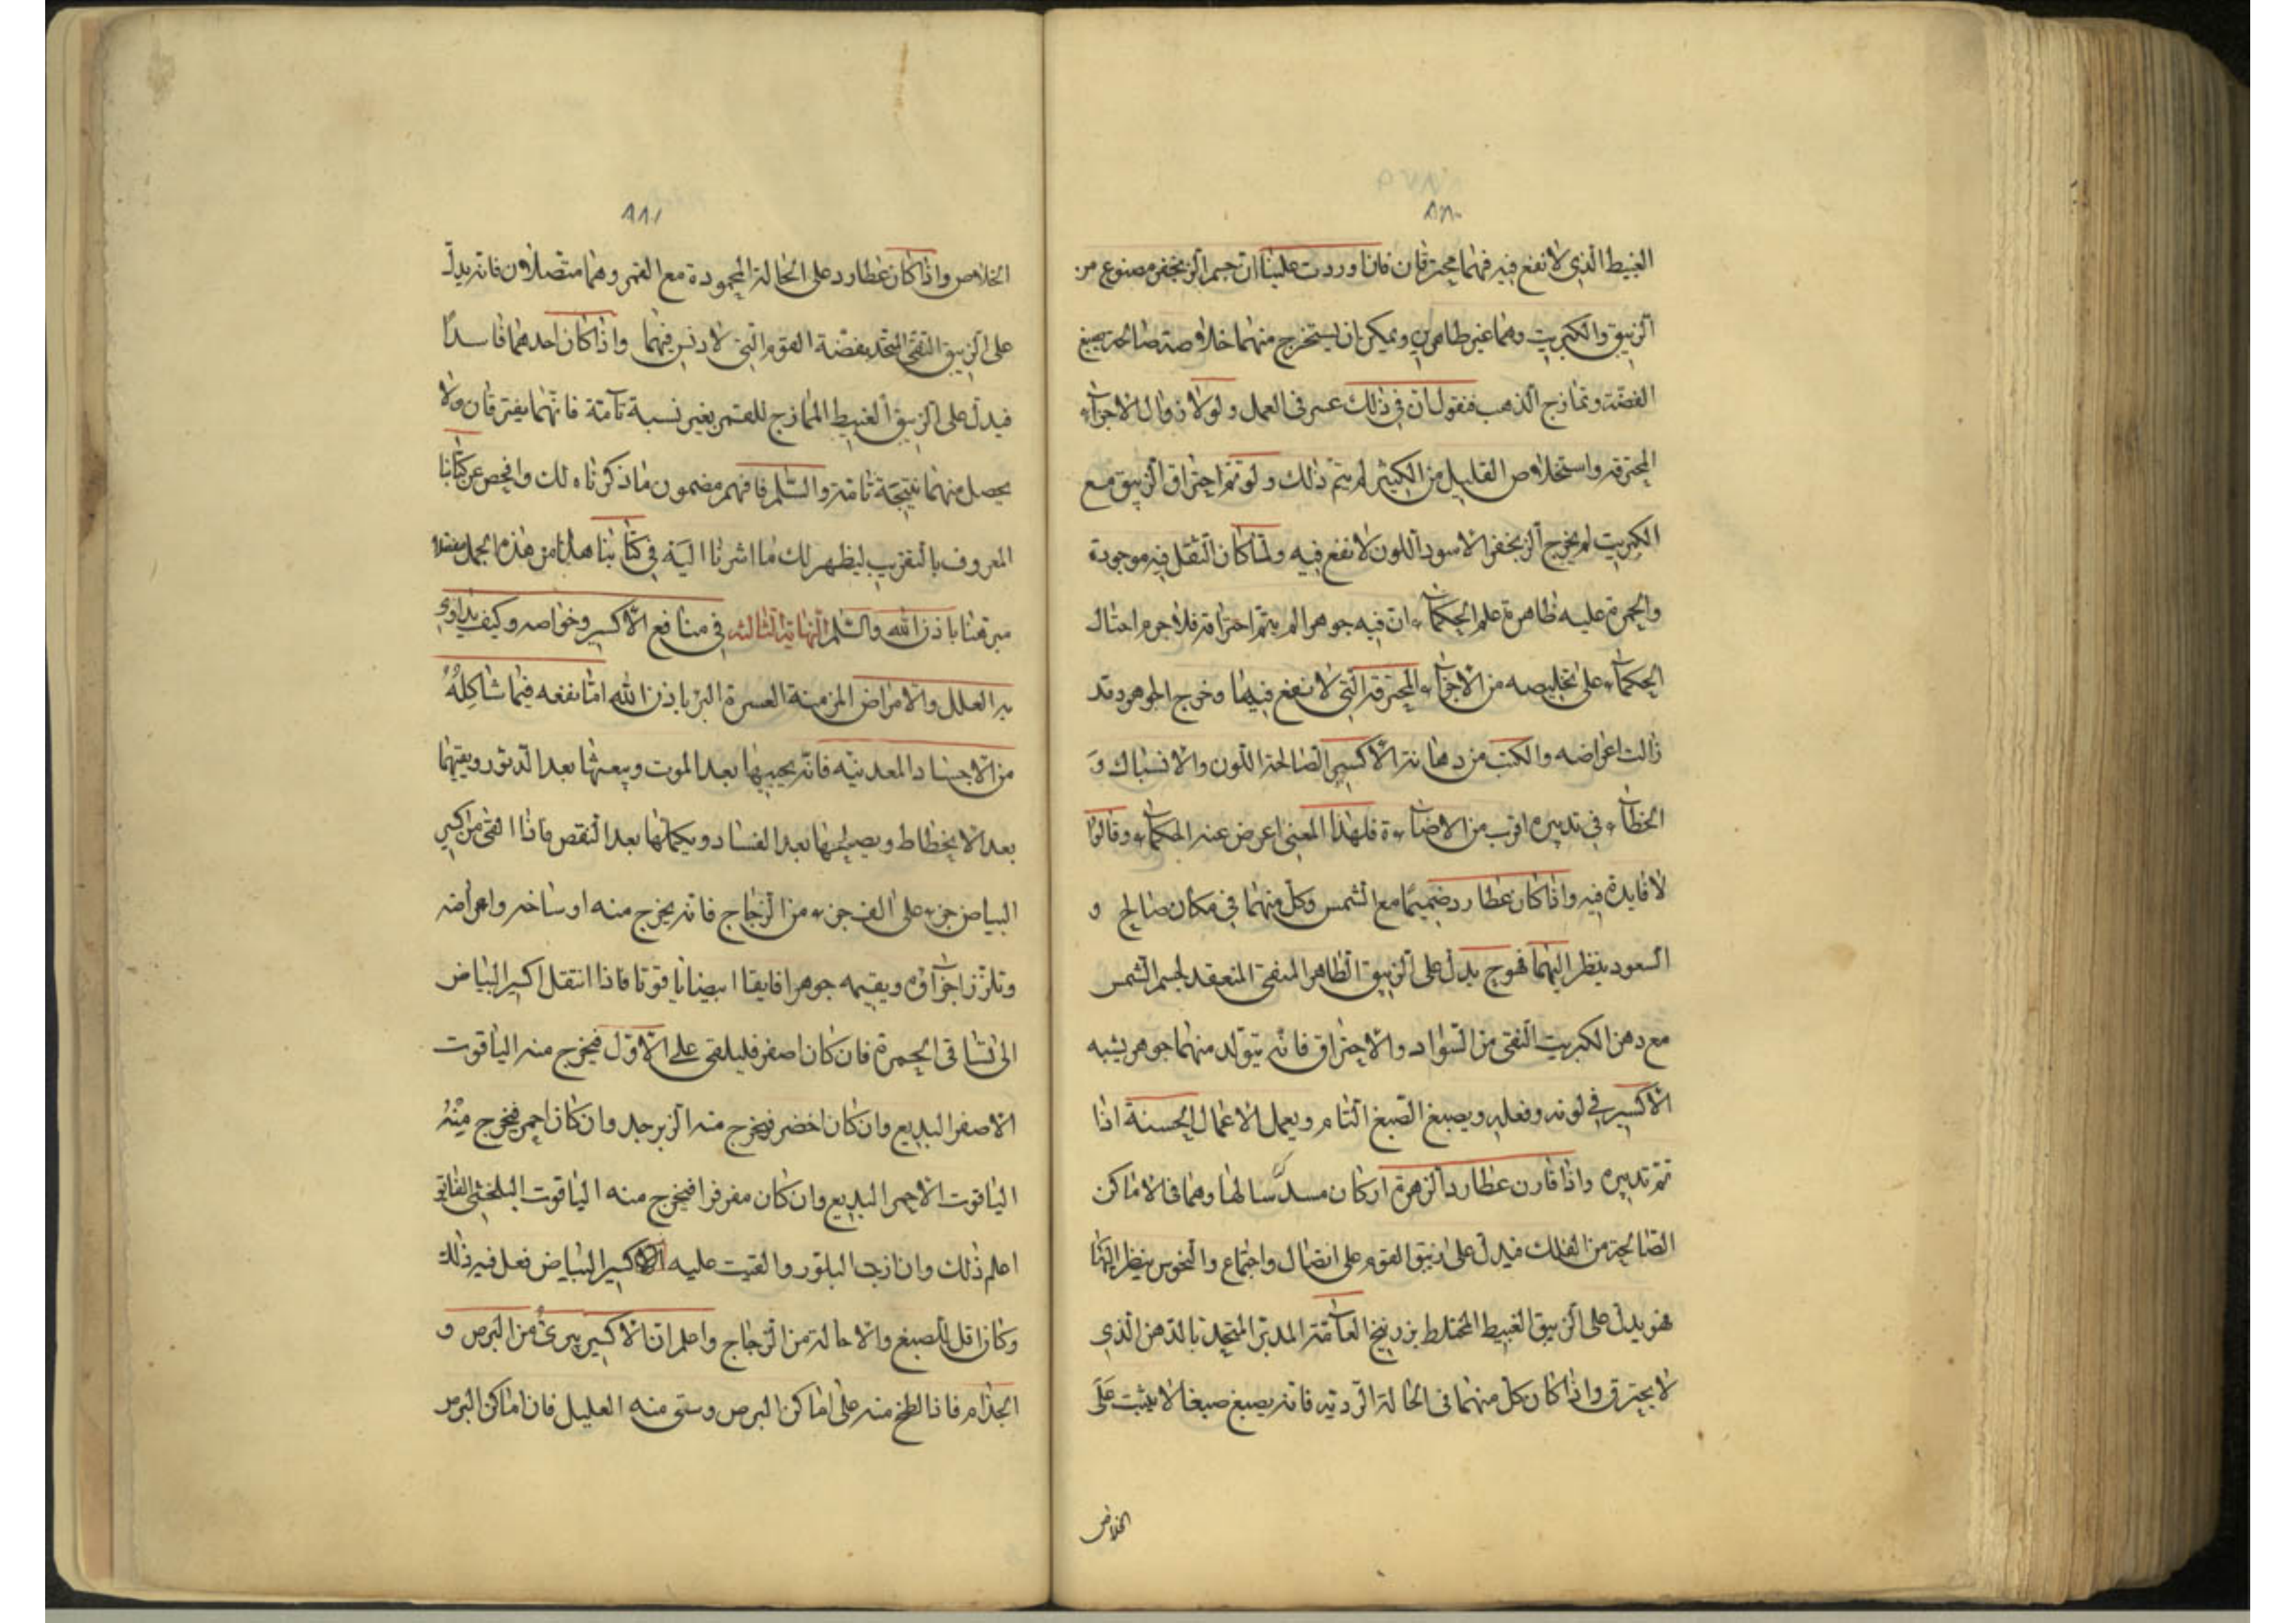 ٨٨٠
الغبيط الذى لا نفع فيه فهما محترقان فان اوردت علينا ان جسم الزنجفر مصنوع من
الزيبق والكبريت وهما غير طاهرين ويمكن ان يستخرج منهما خلاصة صالحة تصبغ
الفضة وتمازج الذهب فنقول ان فى ذلك عسر فى العمل ولولا زوال الاجزاء
المحترقه واستخلاص القليل من الكثير لم يتم ذلك ولو تم احتراق الزيبق مع
الكبريت لم يخرج الزنجفر الا سود اللون لا نفع فيه ولما كان الثقل فيه موجودة
والحمرة عليه ظاهرة علم الحكماء ان فيه جوهرا لم يتم احتراقه فلا جرم احتال
الحكماء على تخليصه من الاجزاء المحترقه التى لا نفع فيها وخرج الجوهر وقد
زالت اعراضه والكتب من دهانة الاكسير الصالحة اللون والانسباك و
الخطاء فى تدبيره اقرب من الاضاءة فلهذا المعنى اعرض عنه الحكماء وقالوا
لا فايدة فيه واذا كان عطارد ضميما مع الشمس وكل منهما فى مكان صالح و
السعود ينظر اليهما فهوح يدل على الزيبق الطاهر المنقى المنعقد لجسم الشمس
مع دهن الكبريت النقى من السواد والاحتراق فانه يتولد منهما جوهر يشبه
الاكسير فى لونه وفعله ويصبغ الصبغ التام ويعمل الاعمال الحسنة اذا
تم تدبيره واذا قارن عطارد الزهرة او كان مسدسا لها وهما فى الاماكن
الصالحة من الفلك فيدل على زيبق القوم على اتصال واجتماع والنحوس ينظر اليهما
فهو يدل على الزيبق الغبيط المختلط بزرنيخ العامة المدبر المتحد بالدهن الذى
لا يحترق واذا كان كل منهما فى الحالة الردية فانه يصبغ صبغا لا يثبت على
الخلاص
٨٨١
الخلاص واذا كان عطارد على الحالة المحمودة مع القمر وهما متصلان فانه يدل
على الزيبق النقى المتحد بفضة القوم التى لا دنس فيهما واذا كان احدهما فاسدا
فيدل على الزيبق الغبيط الممازج للقمر بغير نسبة تامة فانهما يفترقان ولا
يحصل منهما نتيجة تامة والسلم فافهم مضمون ما ذكرناه لك وافحص عن كتابنا
المعروف بالتقريب ليظهر لك ما اشرنا اليه فى كتابنا هذا من هذه الجمل مفصلا
مبرهنا باذن الله والسلم النهاية الثالثه فى منافع الاكسير وخواصه وكيف يداوى
به العلل والامراض المزمنة العسرة البرء باذن الله اما نفعه فيما شاكله
من الاجساد المعدنيه فانه يحييها بعد الموت ويبعثها بعد الدثور ويقيمها
بعد الانحطاط ويصلحها بعد الفساد ويكملها بعد النقص فاذا القى من اكسير
البياض جزء على الف جزء من الزجاج فانه يخرج منه اوساخه واعراضه
وتلزز اجزاؤه ويقيمه جوهرا فايقا ابيضا ياقوتا فاذا انتقل اكسير البياض
الى نشاقى الحمرة فان كان اصفر فليلقى على الاول فيخرج منه الياقوت
الاصفر البديع وان كان اخضر فيخرج منه الزبرجد وان كان احمر فيخرج منه
الياقوت الاحمر البديع وان كان مفرفرا فيخرج منه الياقوت البلخشى الفايق
اعلم ذلك وان اذبت البلور والقيت عليه اكسير البياض فعل فيه ذلك
وكان اقل للصبغ والاحالة من الزجاج واعلم ان الاكسير يبرئ من البرص و
الجذام فاذا لطخ منه على اماكن البرص وسقى منه العليل فان اماكن البرص